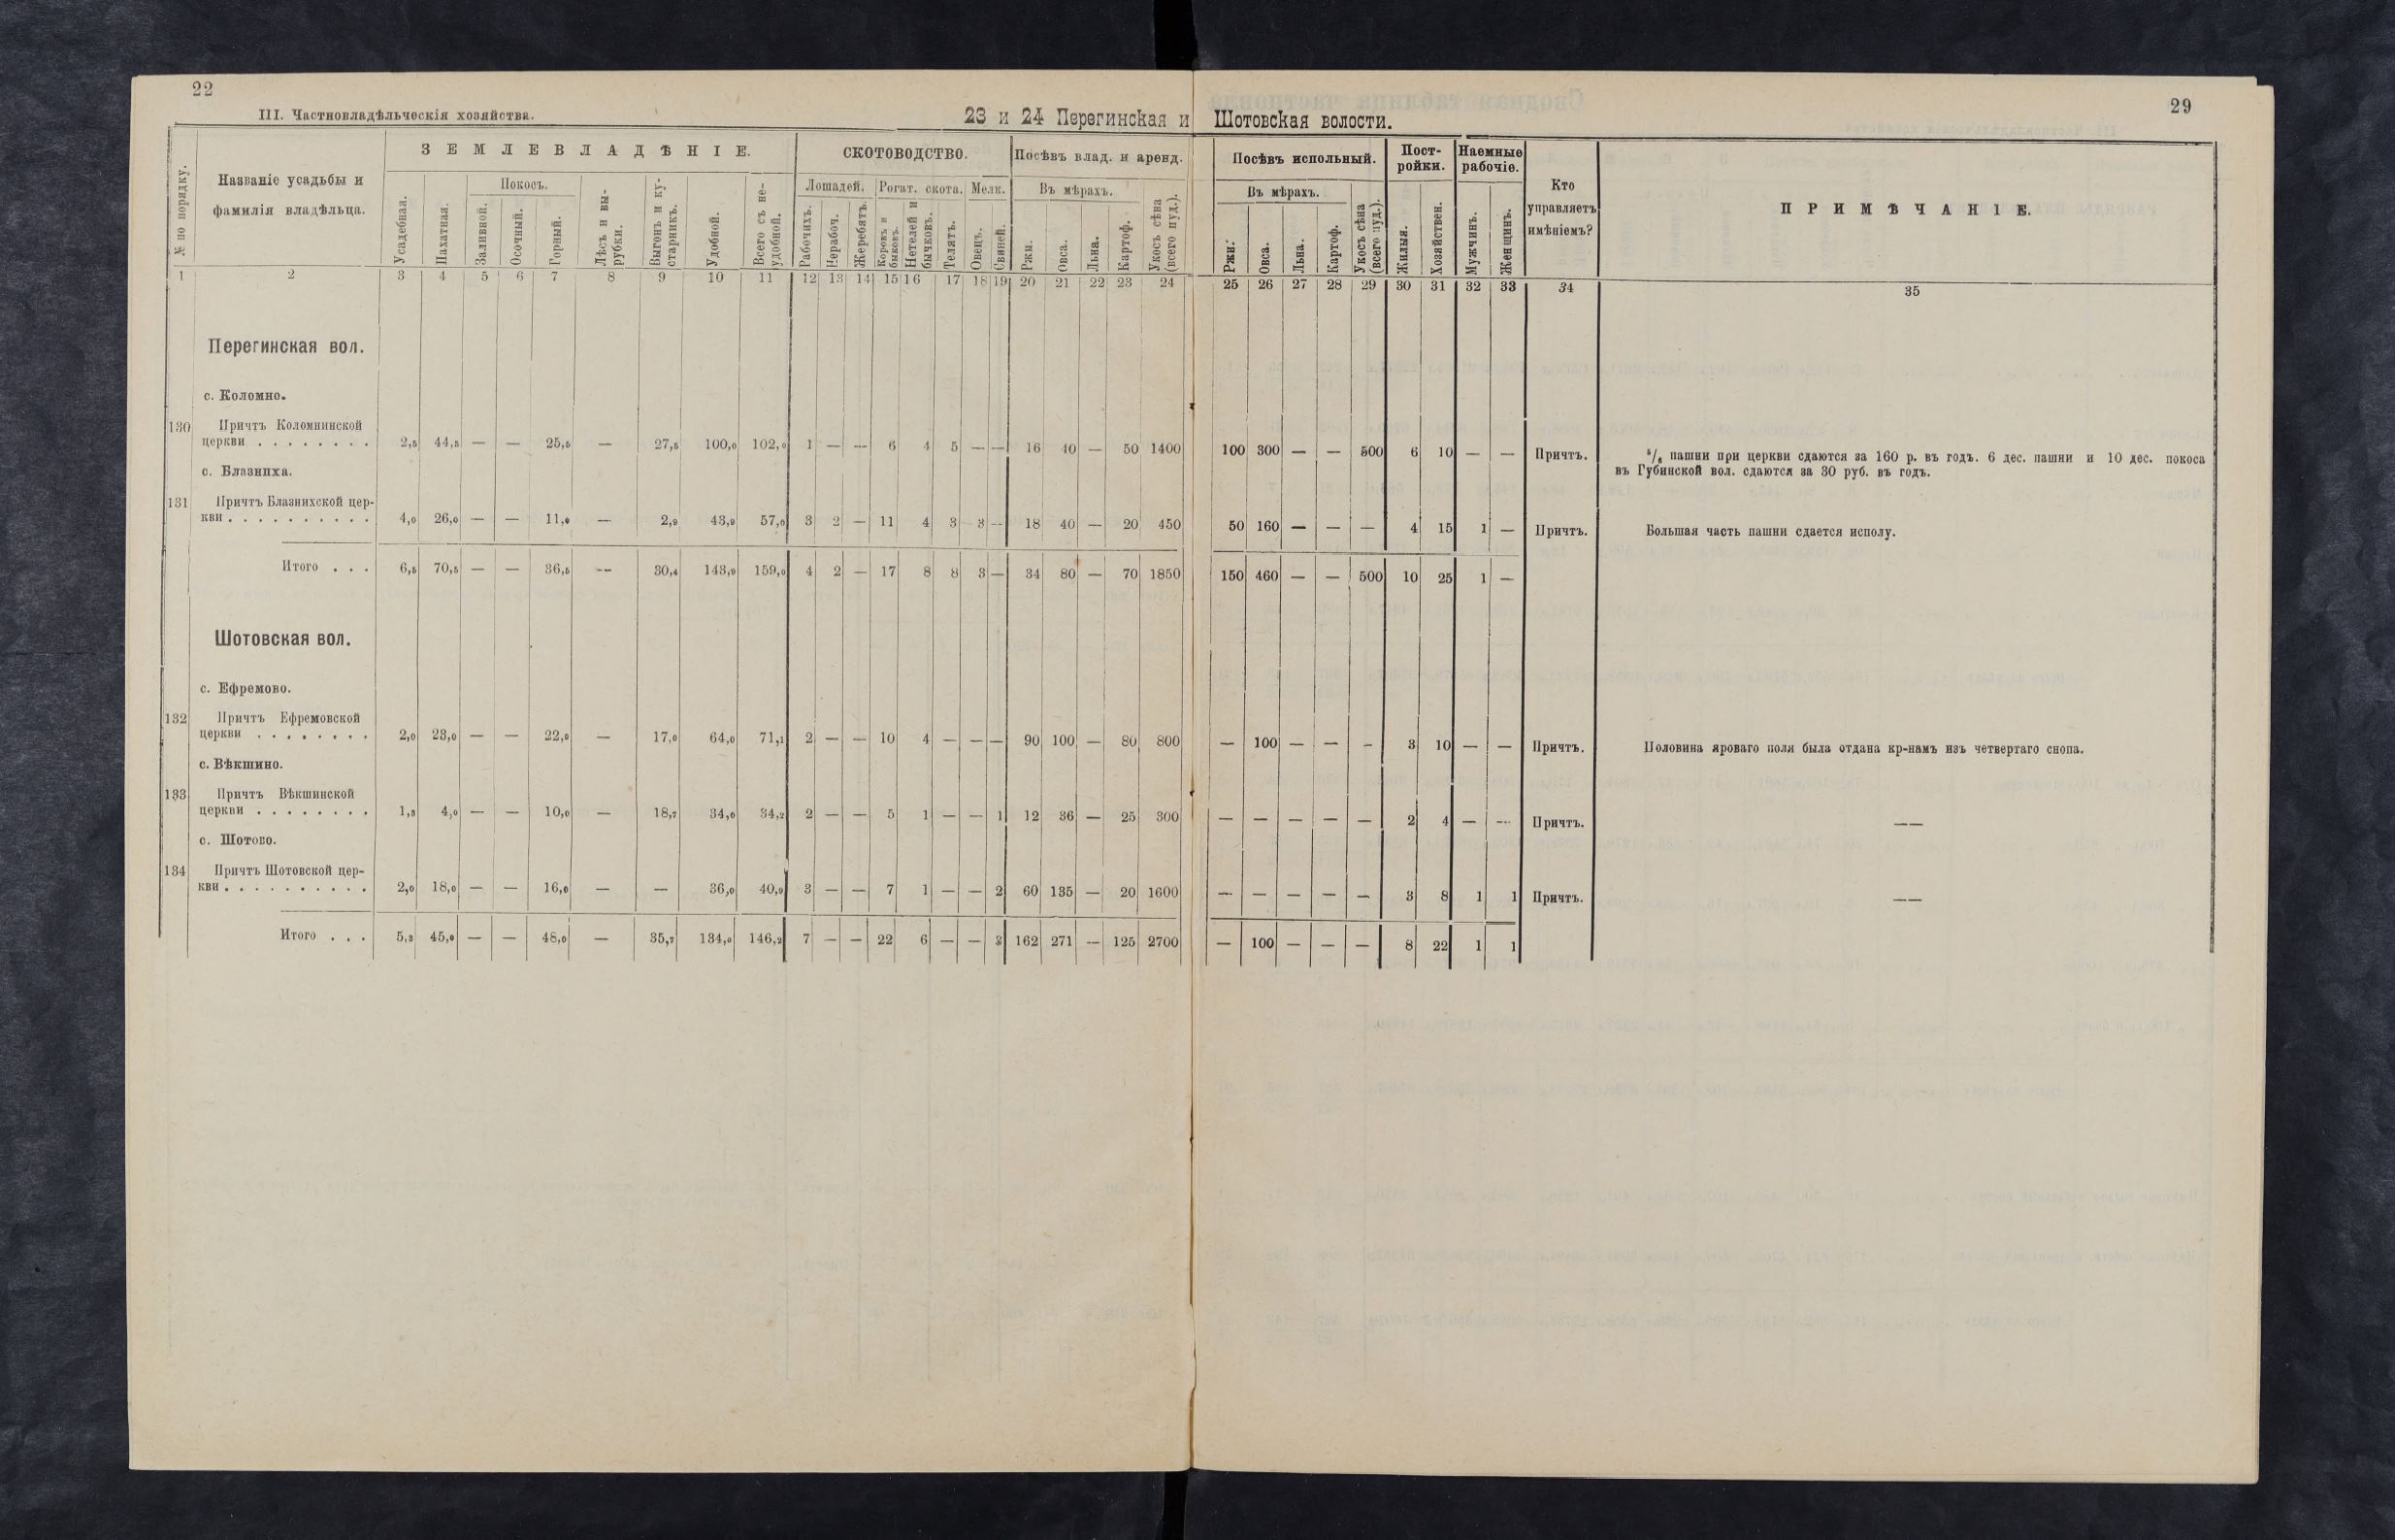 22
III. Частновладѣльческія хозяйства.
23 и 24 Перегинская и Шотовская волости.
29
№ по порядку.
Названіе усадьбы и
фамилія владѣльца.
ЗЕМЛЕВЛАДѢНІЕ.
Усадебная.
Пахатная.
Покосъ.
Заливной.
Осочный.
Горный.
Лѣсъ и вы-
рубки.
Выгонъ и ку-
старникъ.
Удобной.
Всего съ не-
удобной.
СКОТОВОДСТВО.
Лошадей.
Рабочихъ.
Нерабоч.
Жеребятъ.
Рогат. скота.
Коровъ и
быковъ.
Нетелей и
бычковъ.
Телятъ.
Мелк.
Овецъ.
Свиней.
Посѣвъ влад. и аренд.
Въ мѣрахъ.
Ржи.
Овса.
Льна.
Картоф.
Укосъ сѣна
(всего пуд.).
Посѣвъ испольный.
Въ мѣрахъ.
Ржи.
Овса.
Льна.
Картоф.
Укосъ сѣна
(всего пуд.).
Пост-
ройки.
Жилыя.
Хозяйствен.
Наемные
рабочіе.
Мужчинъ.
Женщинъ.
Кто
управляетъ
имѣніемъ?
ПРИМѢЧАНІЕ.
1 2 3 4 5 6 7 8 9 10 11 12 13 14 15 16 17 18 19 20 21 22 23 24 25 26 27 28 29 30 31 32 33 34 35
Перегинская вол.
с. Коломно.
130 Причтъ Коломнинской
церкви . . . . . . . . 2,5 44,5 — — 25,5 — 27,5 100,0 102,0 1 — — 6 4 5 — — 16 40 — 50 1400 100 300 — — 500 6 10 — — Причтъ. 5/6 пашни при церкви сдаются за 160 р. въ годъ. 6 дес. пашни и 10 дес. покоса
въ Губинской вол. сдаются за 30 руб. въ годъ.
с. Блазниха.
131 Причтъ Блазнихской цер-
кви . . . . . . . . . . 4,0 26,0 — — 11,0 — 2,9 43,9 57,0 3 2 — 11 4 3 3 — 18 40 — 20 450 50 160 — — — 4 15 1 — Причтъ. Большая часть пашни сдается исполу.
Итого . . . 6,5 70,5 — — 36,5 — 30,4 143,9 159,0 4 2 — 17 8 8 3 — 34 80 — 70 1850 150 460 — — 500 10 25 1 —
Шотовская вол.
с. Ефремово.
132 Причтъ Ефремовской
церкви . . . . . . . . 2,0 23,0 — — 22,0 — 17,0 64,0 71,1 2 — — 10 4 — — — 90 100 — 80 800 — 100 — — — 3 10 — — Причтъ. Половина яроваго поля была отдана кр-намъ изъ четвертаго снопа.
с. Вѣкшино.
133 Причтъ Вѣкшинской
церкви . . . . . . . . 1,3 4,0 — — 10,0 — 18,7 34,0 34,2 2 — — 5 1 — — 1 12 36 — 25 300 — — — — — 2 4 — — Причтъ. ——
с. Шотово.
134 Причтъ Шотовской цер-
кви . . . . . . . . . . 2,0 18,0 — — 16,0 — — 36,0 40,9 3 — — 7 1 — — 2 60 135 — 20 1600 — — — — — 3 8 1 1 Причтъ. ——
Итого . . . 5,3 45,0 — — 48,0 — 35,7 134,0 146,2 7 — — 22 6 — — 3 162 271 — 125 2700 — 100 — — — 8 22 1 1